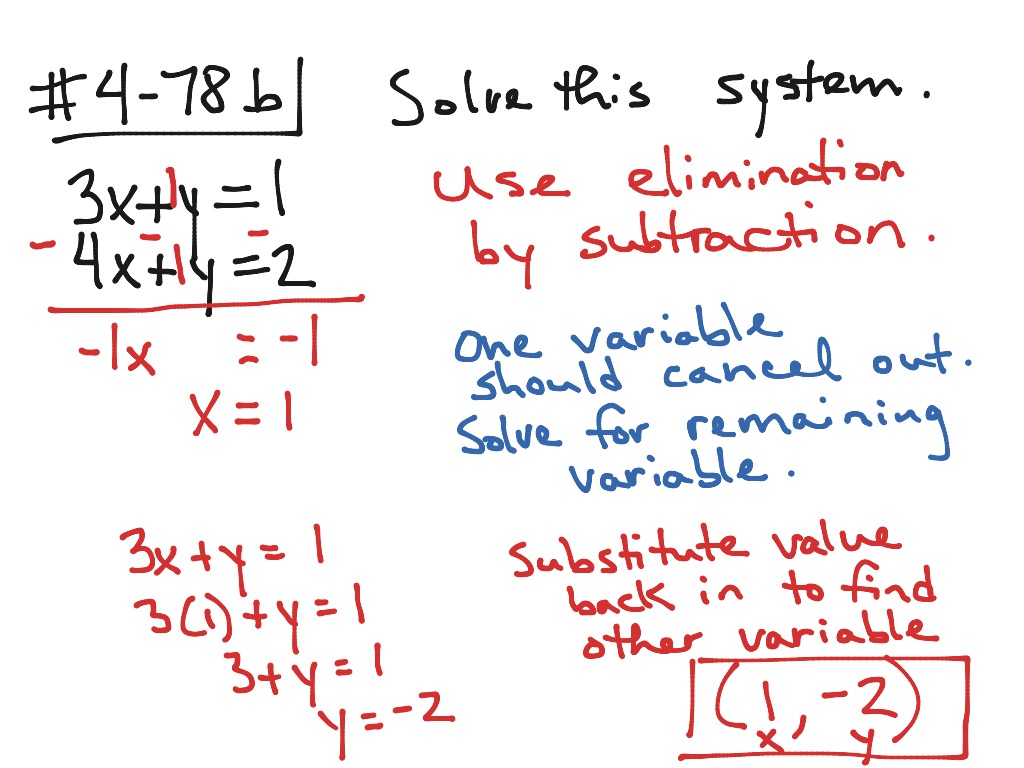 #4-78 b Solve this system.
3x+1y=1
- 4x+1y=2
-1x = -1
x = 1
use elimination
by subtraction.
One variable
should cancel out.
Solve for remaining
variable.
3x+y=1
3(1)+y=1
3+y=1
y=-2
Substitute value
back in to find
other variable
(1, -2)
x y